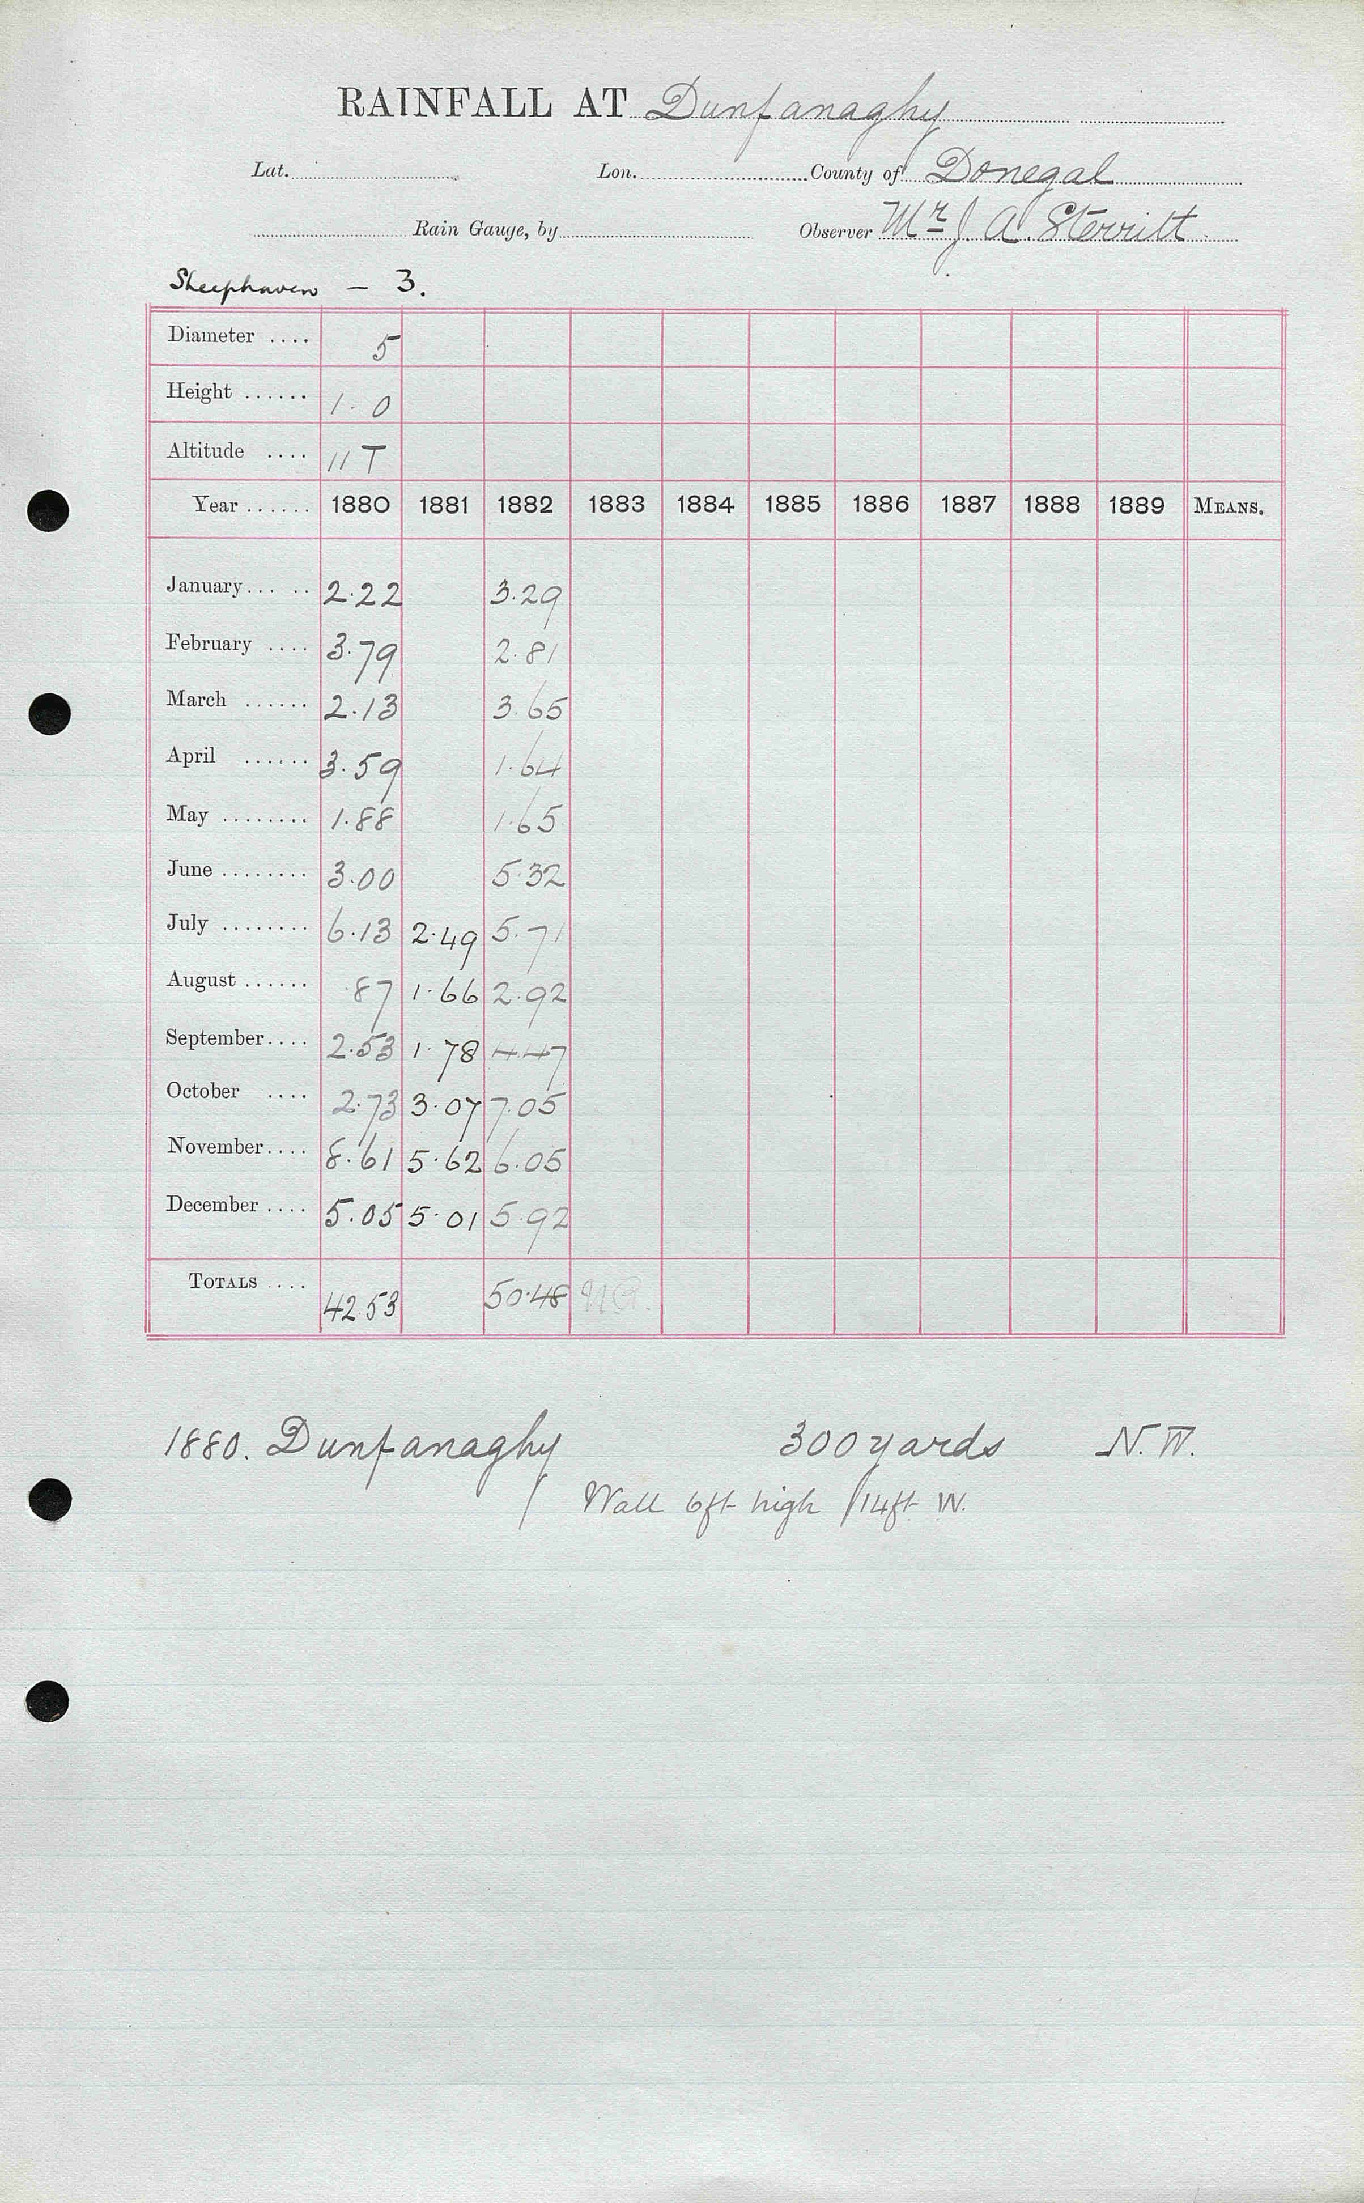 RAINFALL AT Dunfanaghy
Lat. Lon. County of Donegal
Rain Gauge, by Observer Mr J. A. Sterritt
Sheephaven - 3.
Diameter .... 5
Height ...... 1. 0
Altitude .... 11 T
Year ...... 1880 1881 1882 1883 1884 1885 1886 1887 1888 1889 MEANS.
January... .. 2.22 3.29
February .... 3.79 2.81
March ...... 2.13 3.65
April ...... 3.59 1.64
May ........ 1.88 1.65
June ........ 3.00 5.32
July ........ 6.13 2.49 5.71
August ...... .87 1.66 2.92
September.... 2.53 1.78 4.47
October .... 2.73 3.07 7.05
November.... 8.61 5.62 6.05
December .... 5.05 5.01 5.92
TOTALS .... 42.53 50.48
1880. Dunfanaghy 300 yards N.W.
Wall 6ft high 14ft W.